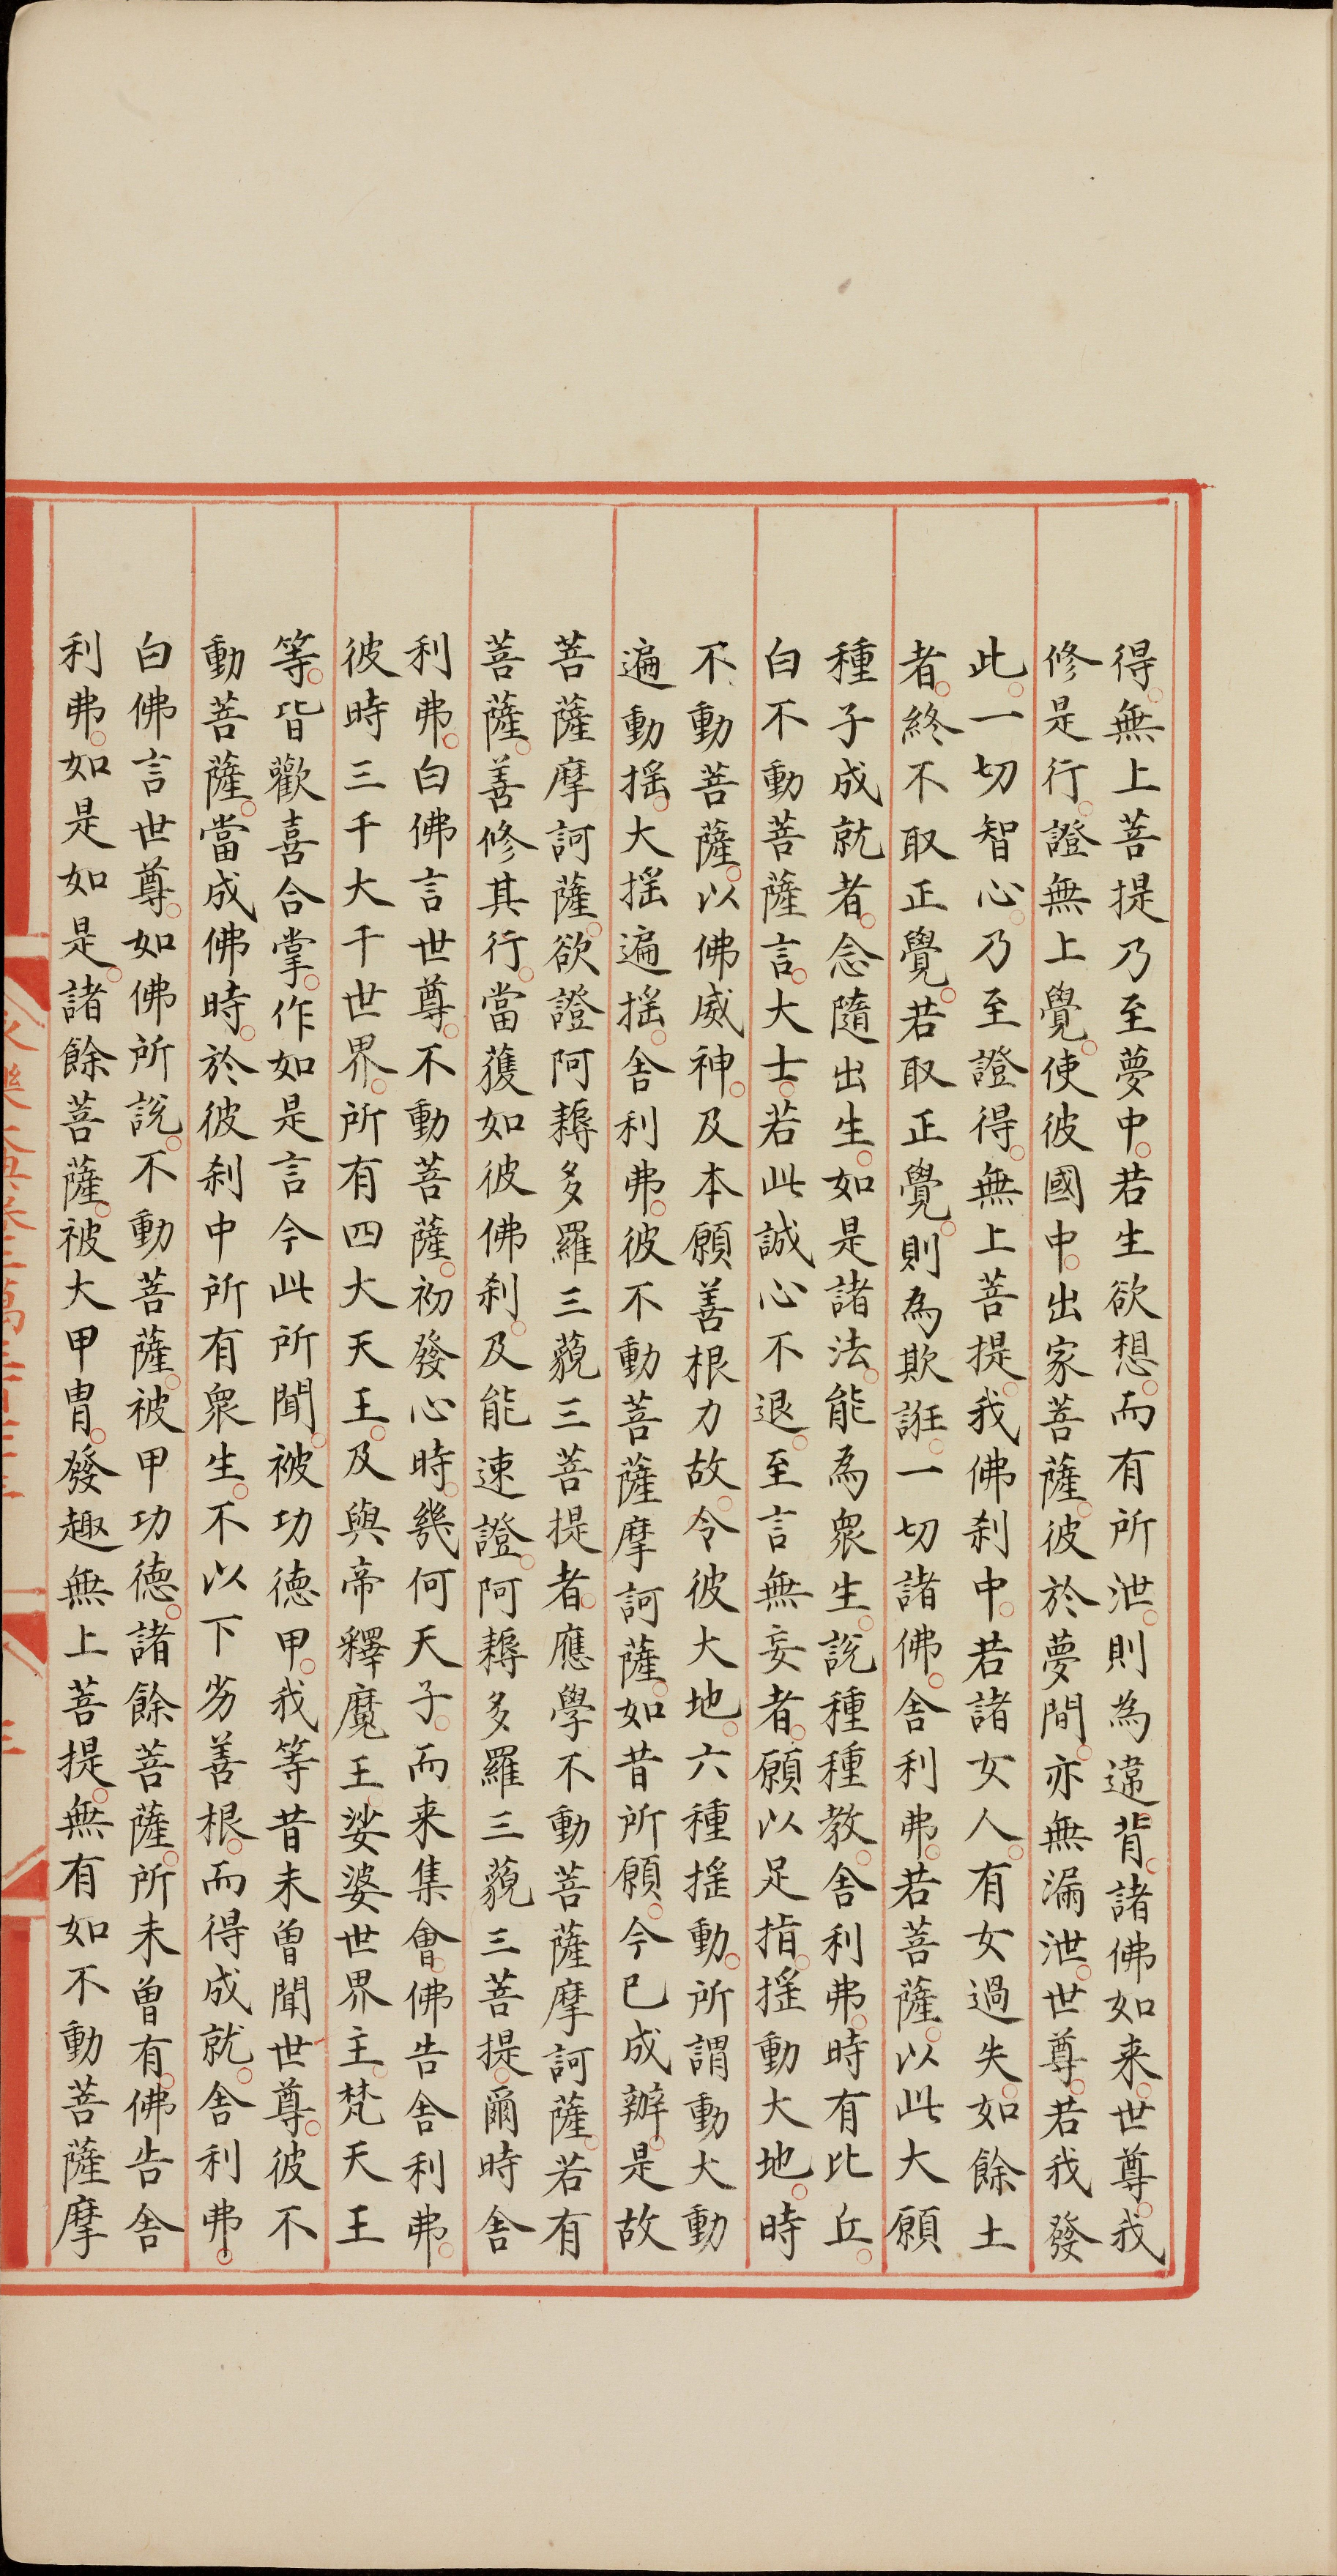 得。無上菩提乃至夢中。若生欲想。而有所泄。則為違背。諸佛如来。世尊。我
修是行。證無上覺。使彼國中。出家菩薩。彼於夢間。亦無漏泄。世尊。若我發
此。一切智心。乃至證得。無上菩提。我佛刹中。若諸女人。有女過失。如餘土
者。終不取正覺。若取正覺。則為欺誑。一切諸佛。舍利弗。若菩薩。以此大願
種子成就者。念隨出生。如是諸法。能為衆生。說種種教。舍利弗。時有比丘。
白不動菩薩言。大士。若此誠心不退。至言無妄者。願以足指。搖動大地。時
不動菩薩。以佛威神。及本願善根力故。令彼大地。六種搖動。所謂動大動
遍動搖。大搖遍搖。舍利弗。彼不動菩薩摩訶薩。如昔所願。今已成辦。是故
菩薩摩訶薩。欲證阿耨多羅三藐三菩提者。應學不動菩薩摩訶薩。若有
菩薩。善修其行。當獲如彼佛刹。及能速證。阿耨多羅三藐三菩提。爾時舍
利弗。白佛言世尊。不動菩薩。初發心時。幾何天子。而来集會。佛告舍利弗。
彼時三千大千世界。所有四大天王。及與帝釋魔王。娑婆世界主。梵天王
等。皆歡喜合掌。作如是言今此所聞。被功德甲。我等昔未曾聞世尊。彼不
動菩薩。當成佛時。於彼刹中所有衆生。不以下劣善根。而得成就。舍利弗。
白佛言世尊。如佛所說。不動菩薩。被甲功德。諸餘菩薩。所未曾有。佛告舍
利弗。如是如是。諸餘菩薩。被大甲胄。發趣無上菩提。無有如不動菩薩摩